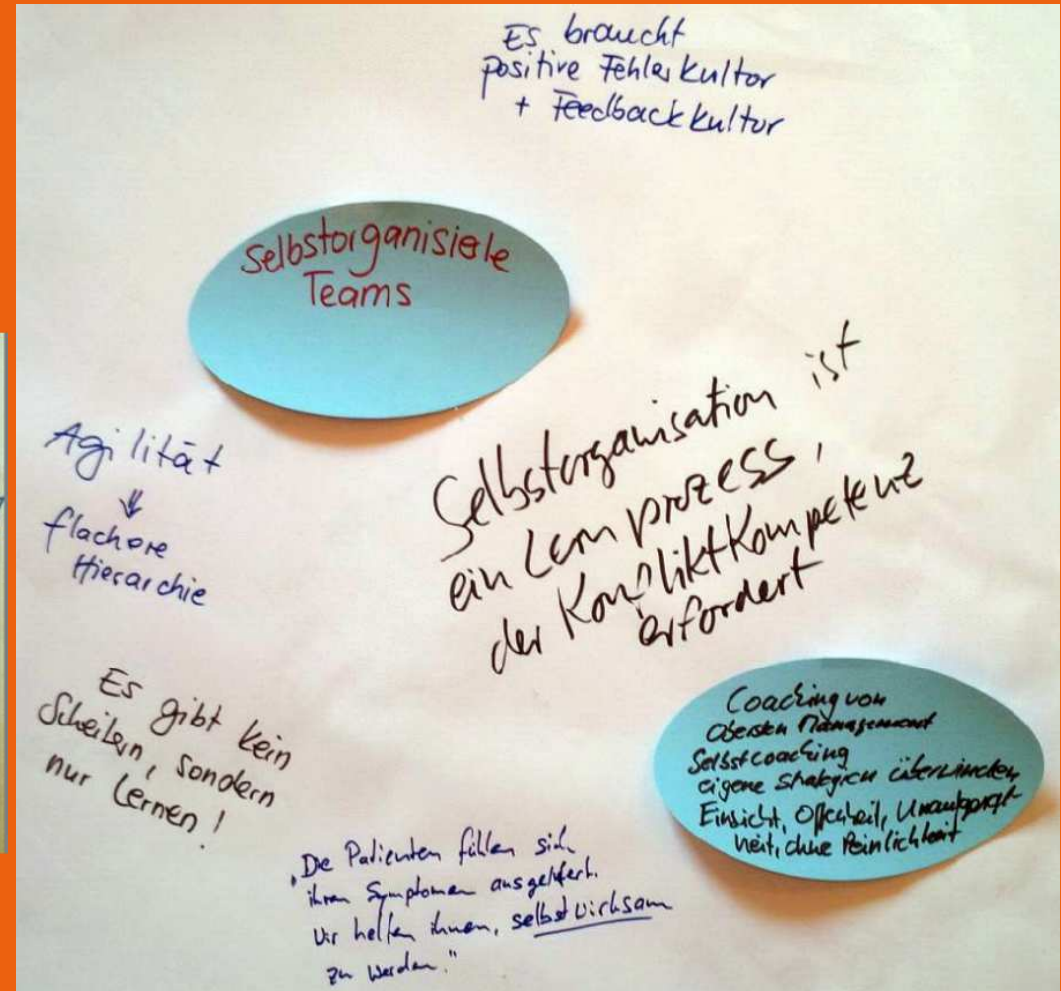 Es braucht
positive Fehlerkultur
+ Feedbackkultur
Selbstorganisierte
Teams
Agilität
flachere
Hierarchie
Selbstorganisation ist
ein Lernprozess,
der Konfliktkompetenz
erfordert
Es gibt kein
Scheitern, sondern
nur Lernen!
Coaching von
Obersten Management
Selbstcoaching
eigene Strategien überwinden
Einsicht, Offenheit, Unaufgeregt-
heit, ohne Peinlichkeit
„Die Patienten fühlen sich
ihren Symptomen ausgeliefert.
Wir helfen ihnen, selbstwirksam
zu werden."